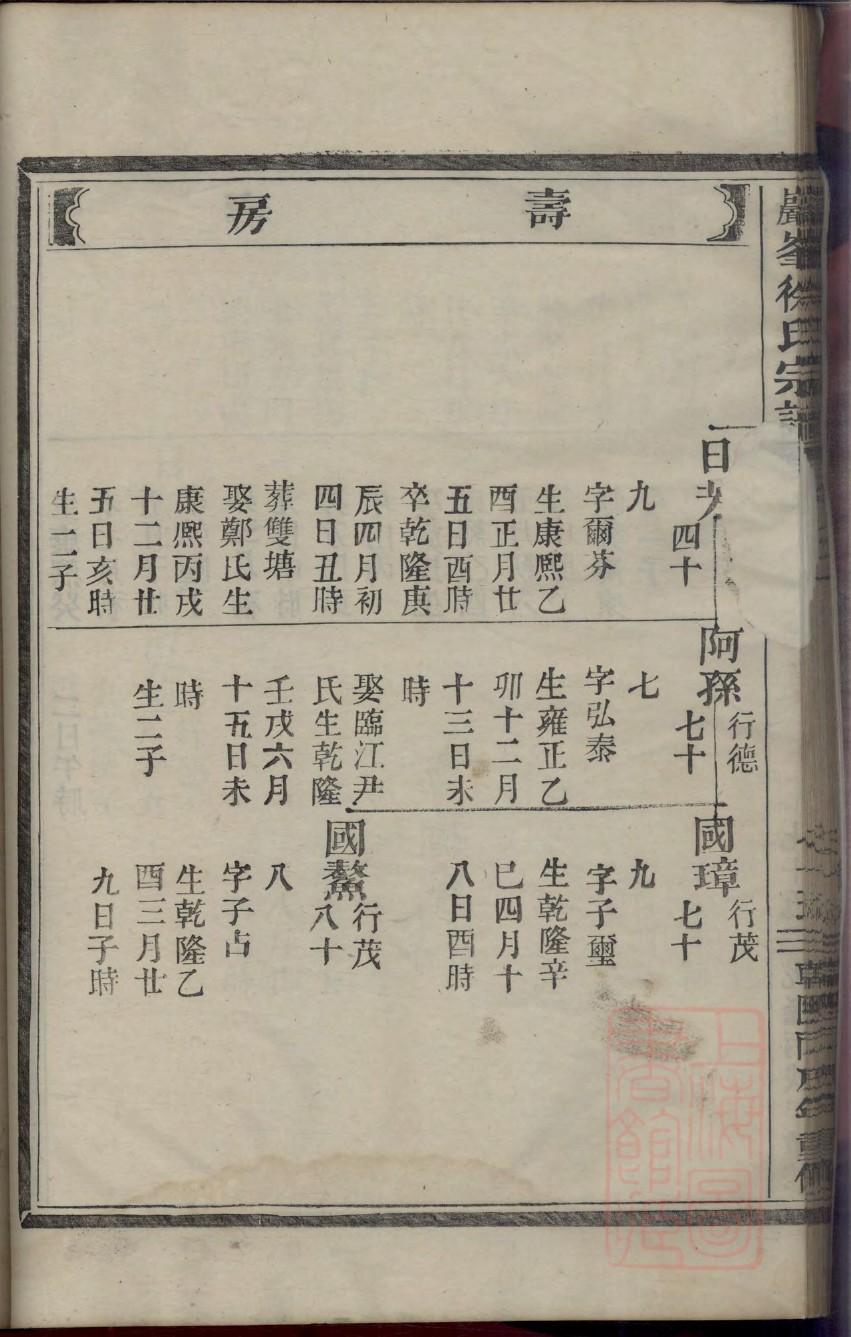 巖峯徐氏宗譜
壽房
日
四十
九
字爾芬
生康熈乙
酉正月廿
五日酉時
卒乾隆庚
辰四月初
四日丑時
葬雙塘
娶鄭氏生
康熈丙戌
十二月廿
五日亥時
生一子
阿孫
行德
七十
七
字弘泰
生雍正乙
卯十二月
十三日未
時
娶臨江尹
氏生乾隆
壬戌六月
十五日未
時
生二子
國璋
行茂
七十
九
字子璽
生乾隆辛
巳四月十
八日酉時
國鰲
行茂
八十
八
字子占
生乾隆乙
酉三月廿
九日子時
重修
上海圖書館藏